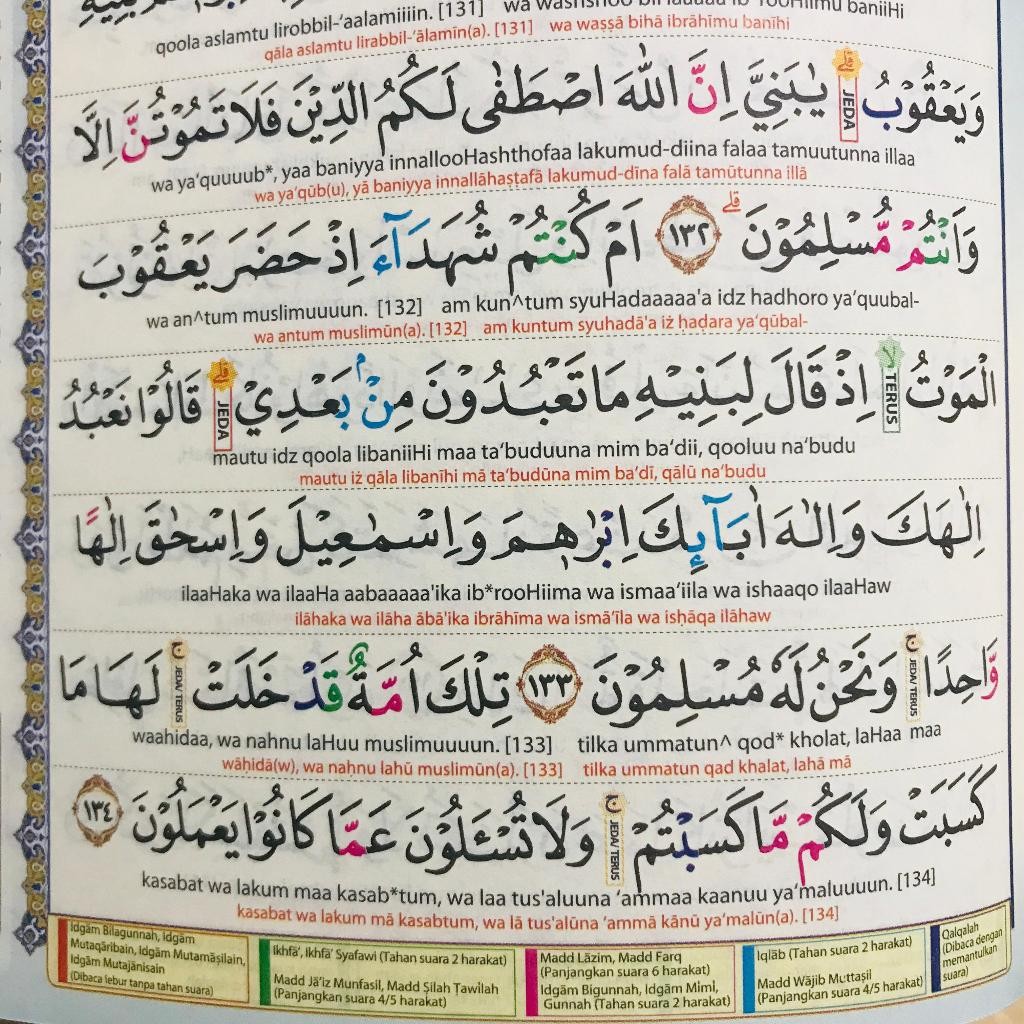 qoola aslamtu lirobbil-‘aalamiiiin. [131]
qāla aslamtu lirabbil-‘ālamīn(a). [131] wa waṣṣā bihā ibrāhīmu banīhi
وَيَعْقُوْبُۗ JEDA يٰبَنِيَّ اِنَّ اللّٰهَ اصْطَفٰى لَكُمُ الدِّيْنَ فَلَا تَمُوْتُنَّ اِلَّا
wa ya‘quuub*, yaa baniyya innallooHashthofaa lakumud-diina falaa tamuutunna illaa
wa ya‘qūb(u), yā baniyya innallāhaṣṭafā lakumud-dīna falā tamūtunna illā
وَاَنْتُمْ مُّسْلِمُوْنَۗ ١٣٢ اَمْ كُنْتُمْ شُهَدَاۤءَ اِذْ حَضَرَ يَعْقُوْبَ
wa an^tum muslimuuuun. [132] am kun^tum syuHadaaaaa'a idz hadhoro ya‘quubal-
wa antum muslimūn(a). [132] am kuntum syuhadā'a iż ḥaḍara ya‘qūbal-
الْمَوْتُۙ TERUS اِذْ قَالَ لِبَنِيْهِ مَا تَعْبُدُوْنَ مِنْۢ بَعْدِيْۗ JEDA قَالُوْا نَعْبُدُ
mautu idz qoola libaniiHi maa ta‘buduuna mim ba‘dii, qooluu na‘budu
mautu iż qāla libanīhi mā ta‘budūna mim ba‘dī, qālū na‘budu
اِلٰهَكَ وَاِلٰهَ اٰبَاۤىِٕكَ اِبْرٰهٖمَ وَاِسْمٰعِيْلَ وَاِسْحٰقَ اِلٰهًا
ilaaHaka wa ilaaHa aabaaaaa'ika ib*rooHiima wa ismaa‘iila wa ishaaqo ilaaHaw
ilāhaka wa ilāha ābā'ika ibrāhīma wa ismā‘īla wa isḥāqa ilāhaw
وَّاحِدًاۚ JEDA/ TERUS وَنَحْنُ لَهٗ مُسْلِمُوْنَ ١٣٣ تِلْكَ اُمَّةٌ قَدْ خَلَتْۚ JEDA/ TERUS لَهَا مَا
waahidaa, wa nahnu laHuu muslimuuuun. [133] tilka ummatun^ qod* kholat, laHaa maa
wāḥidā(w), wa nahnu lahū muslimūn(a). [133] tilka ummatun qad khalat, lahā mā
كَسَبَتْ وَلَكُمْ مَّا كَسَبْتُمْۚ JEDA/ TERUS وَلَا تُسْـَٔلُوْنَ عَمَّا كَانُوْا يَعْمَلُوْنَ ١٣٤
kasabat wa lakum maa kasab*tum, wa laa tus'aluuna ‘ammaa kaanuu ya‘maluuuun. [134]
kasabat wa lakum mā kasabtum, wa lā tus'alūna ‘ammā kānū ya‘malūn(a). [134]
Idgām Bilagunnah, Idgām
Mutaqāribain, Idgām Mutamāṡilain,
Idgām Mutajānisain
(Dibaca lebur tanpa tahan suara)
Ikhfā', Ikhfā' Syafawi (Tahan suara 2 harakat)
Madd Jā'iz Munfasil, Madd Ṣilah Ṭawīlah
(Panjangkan suara 4/5 harakat)
Madd Lāzim, Madd Farq
(Panjangkan suara 6 harakat)
Idgām Bigunnah, Idgām Mimi,
Gunnah (Tahan suara 2 harakat)
Iqlāb (Tahan suara 2 harakat)
Madd Wājib Muttaṣil
(Panjangkan suara 4/5 harakat)
Qalqalah
(Dibaca dengan
memantulkan
suara)